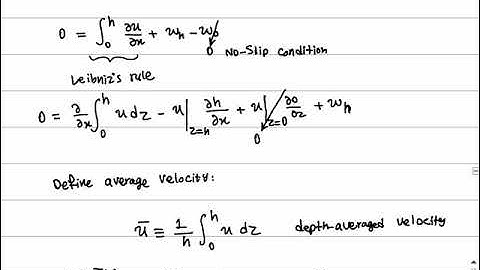 0 = ∫₀ʰ ∂u/∂x + w_h − w₀ 0 No-Slip condition
Leibniz's rule
0 = ∂/∂x ∫₀ʰ u dz − u|_{z=h} ∂h/∂x + u|_{z=0} ∂0/∂z 0 + w_h
Define average velocity:
ū ≡ 1/h ∫₀ʰ u dz depth-averaged velocity